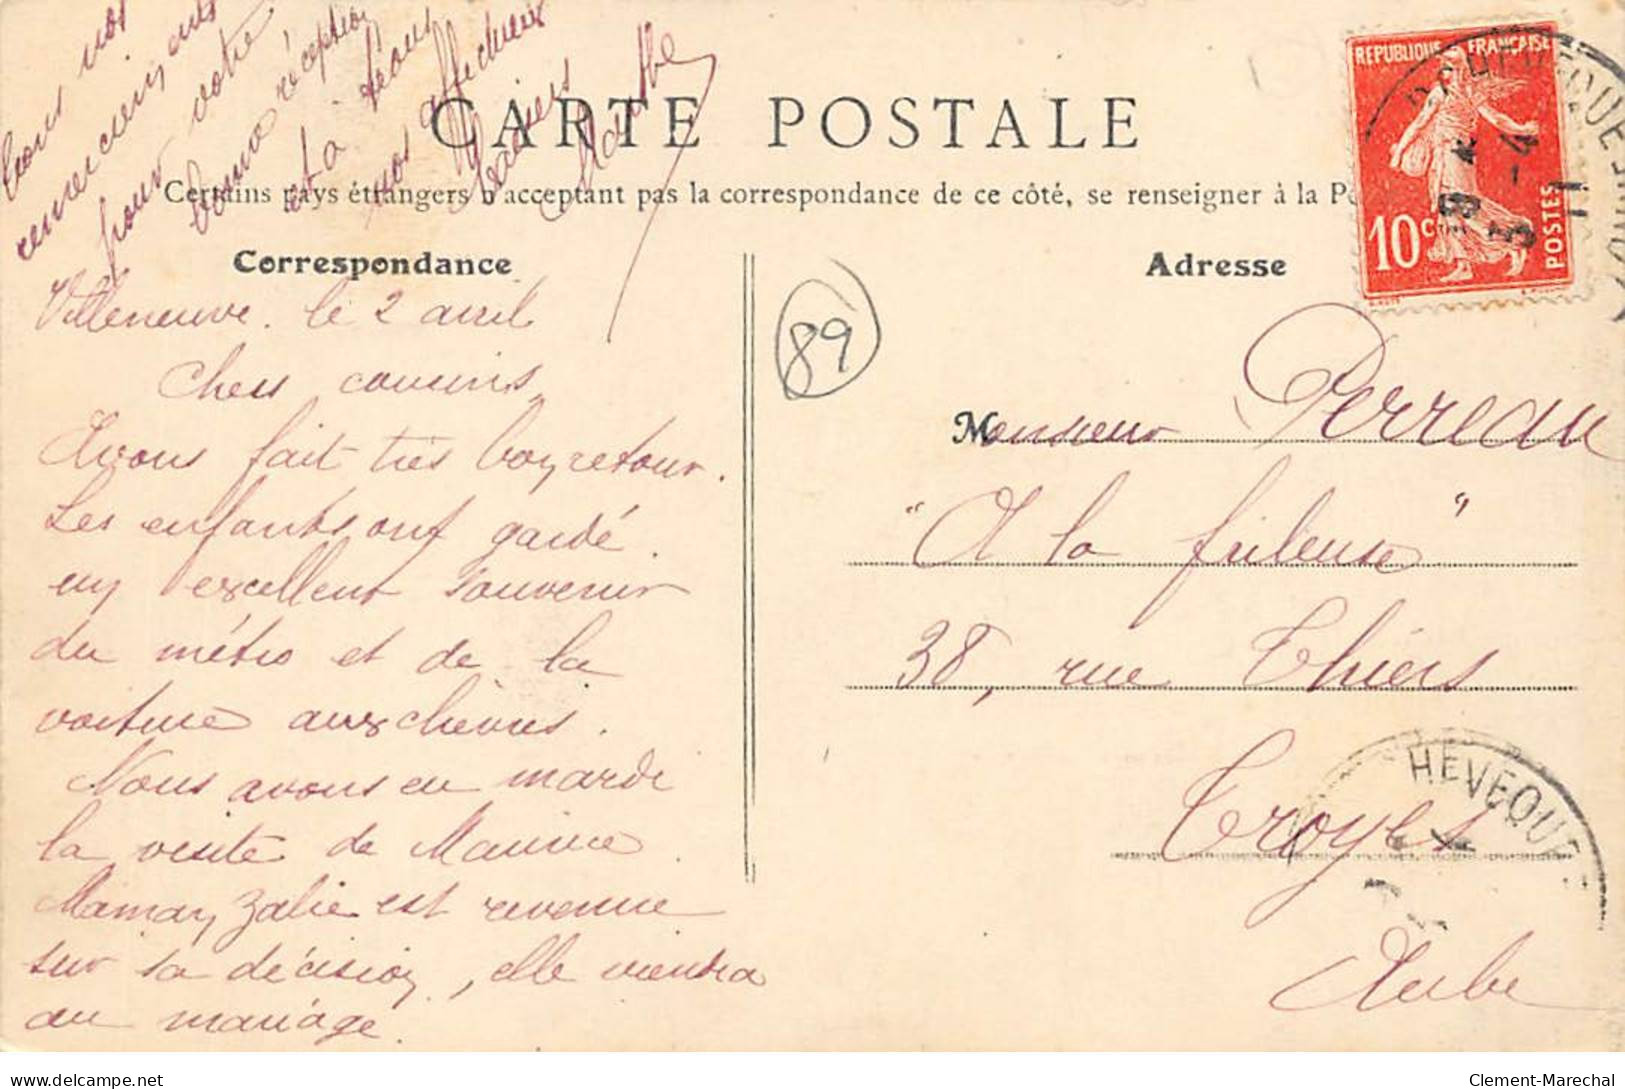 Tous nos
remerciements
pour votre
bonne réception
et à tous
nos affectueux
baisers
Marthe
CARTE POSTALE
Certains pays étrangers n'acceptant pas la correspondance de ce côté, se renseigner à la P
Correspondance
Villeneuve. le 2 avril
Chers cousins,
Avons fait très bon retour.
Les enfants ont gardé
un excellent souvenir
du métro et de la
voiture aux chèvres.
Nous avons eu mardi
la visite de Maurice.
Maman Zélie est revenue
sur sa décision, elle viendra
au mariage.
89
Adresse
REPUBLIQUE FRANÇAISE
10 c
POSTES
Monsieur Perreau
"A la frileuse"
38, rue Thiers
Troyes
Aube
HEVEQUE
Clement-Marechal